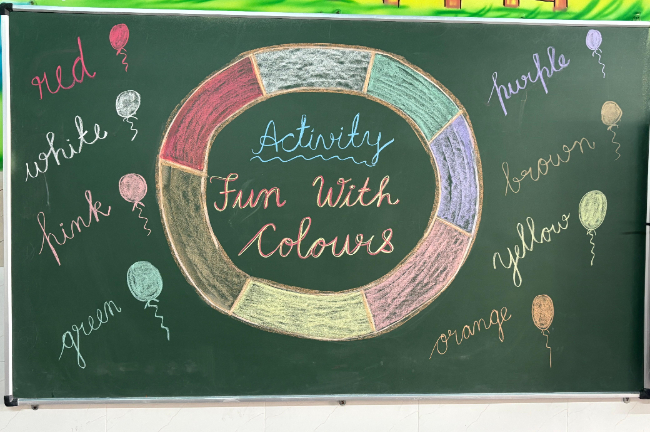 red
white
pink
green
Activity
Fun With
Colours
purple
brown
yellow
orange